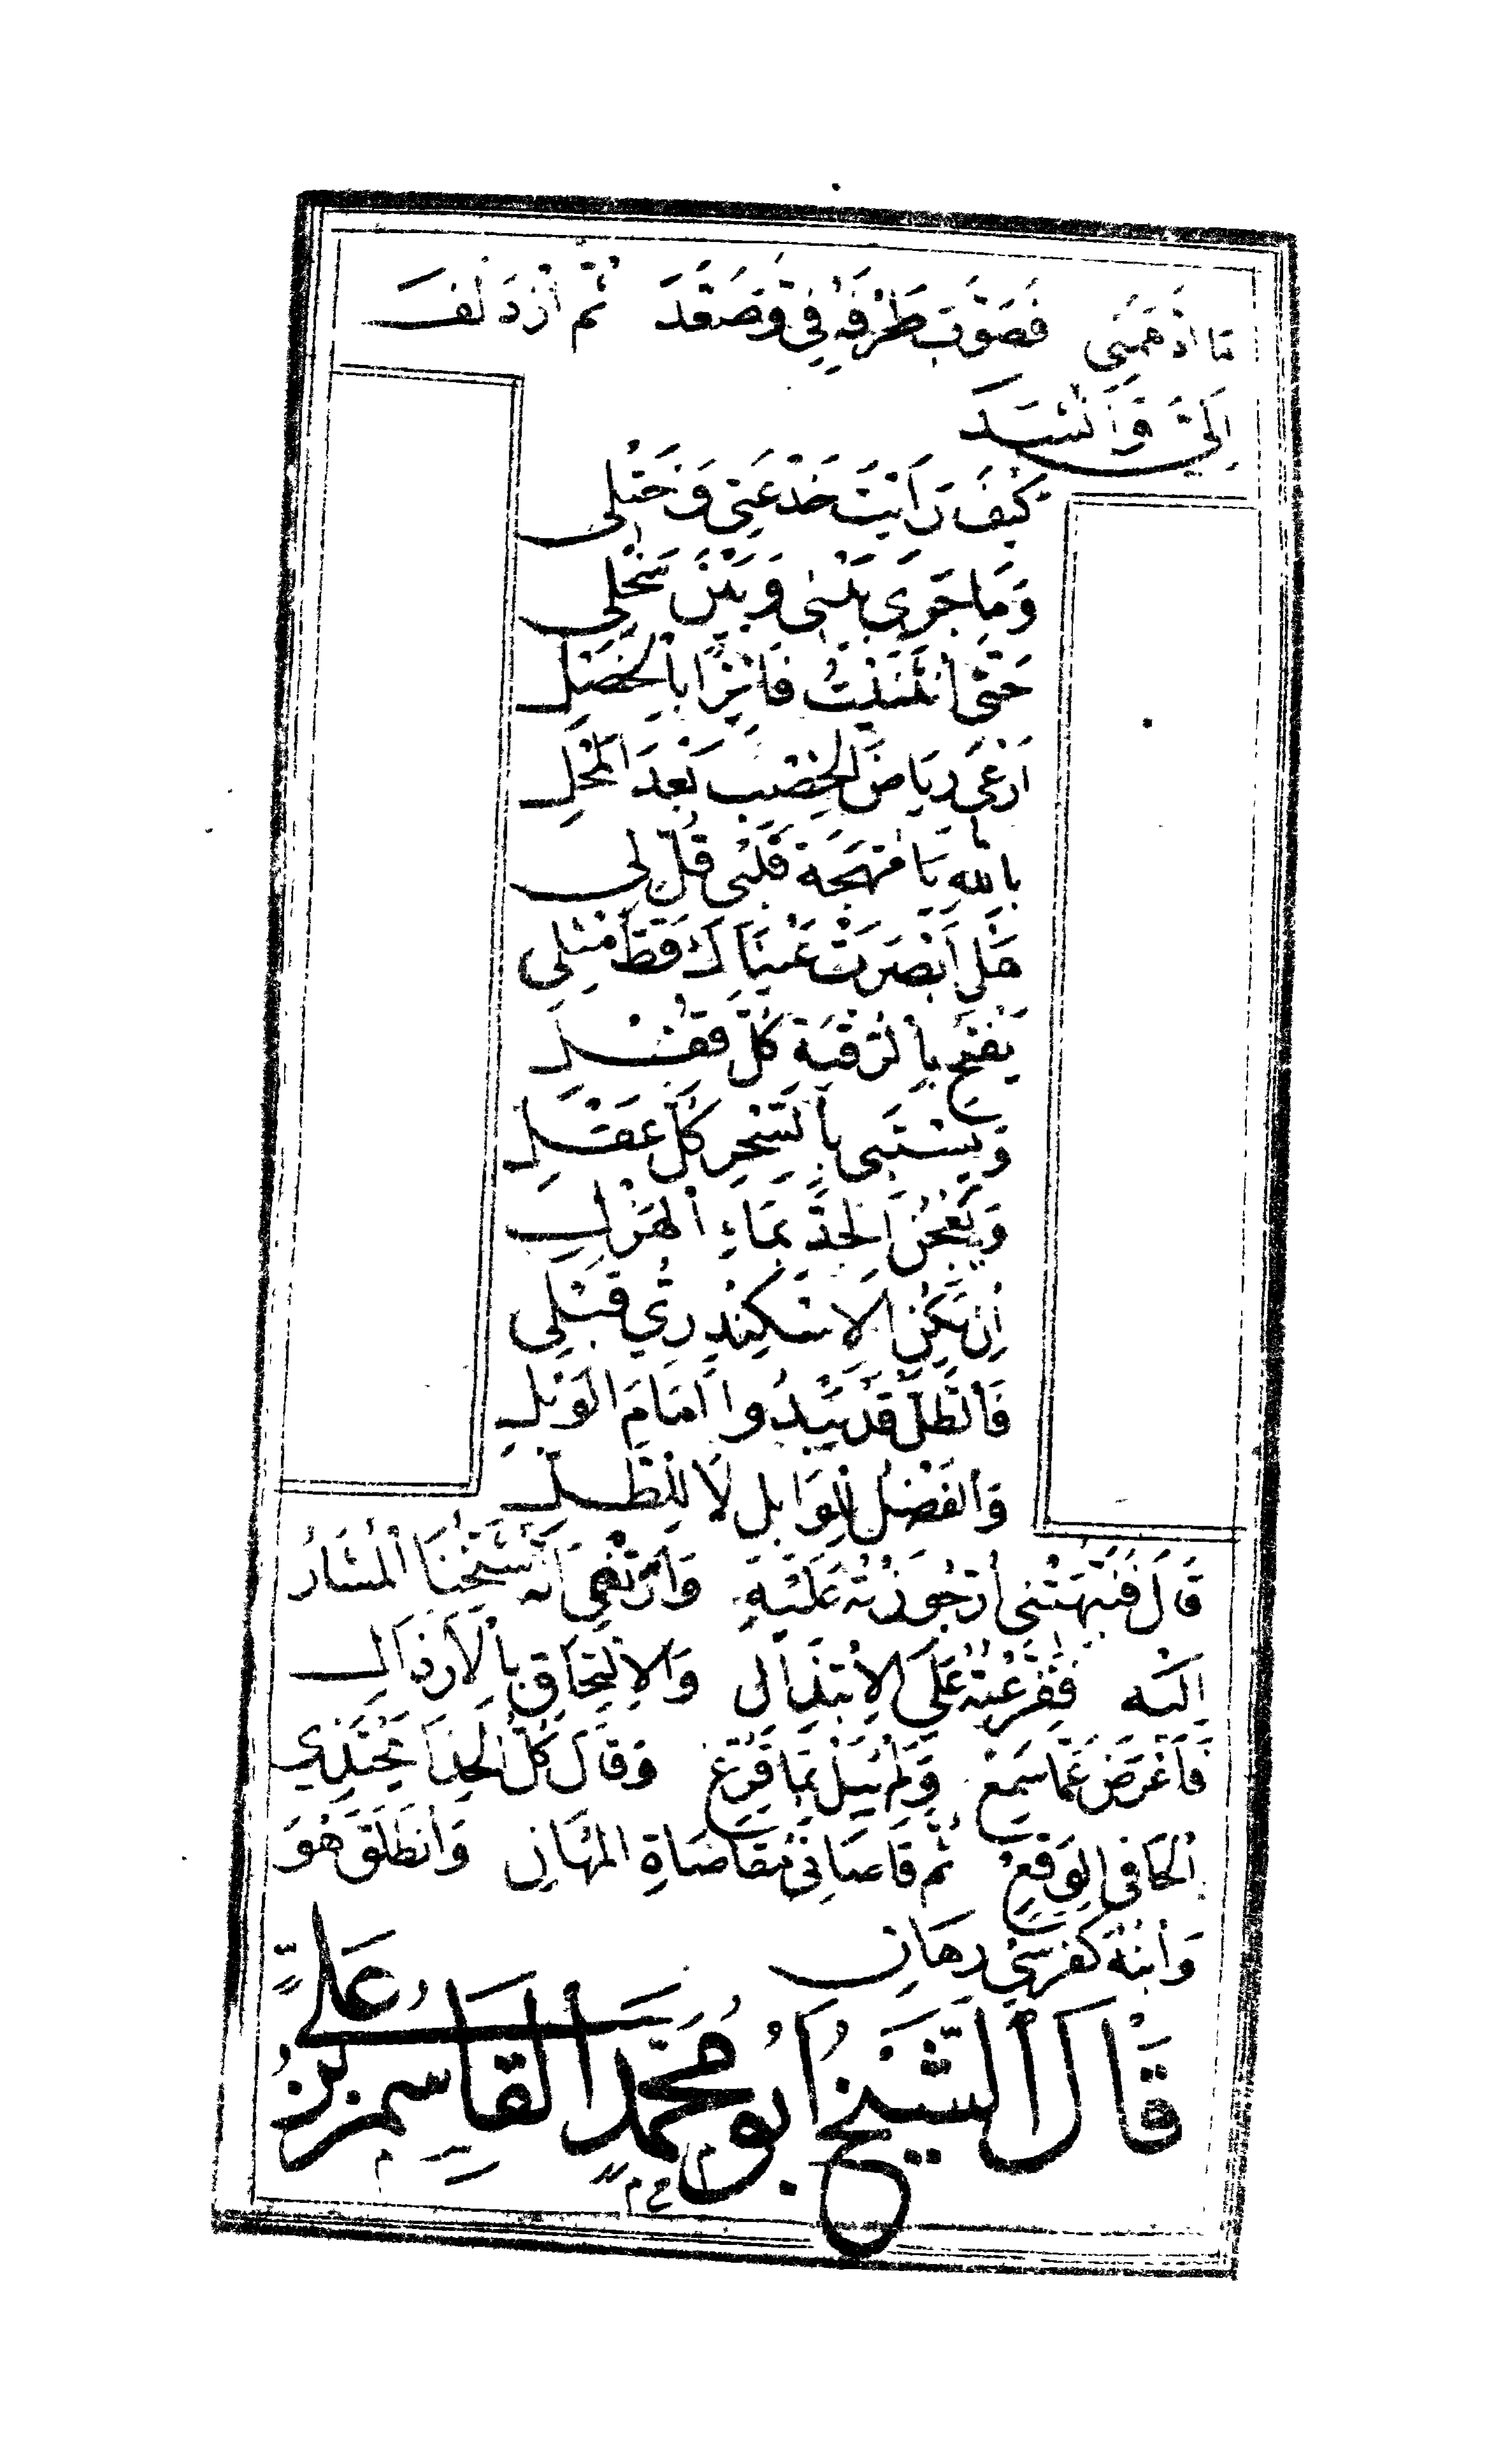 مَا أَذْهَمَنِي فَصَوَّبَ طَرْفَهُ فِيَّ وَصَعَّدَ ثُمَّ ازْدَلَفَ
إِلَيَّ وَأَنْشَدَ
كَيْفَ رَأَيْتَ خَدْعَتِي وَخَتْلِي
وَمَا جَرَى بَيْنِي وَبَيْنَ سَخْلِي
حَتَّى انْثَنَيْتُ فَائِزًا بِالْخَصْلِ
أَرْعَى رِيَاضَ الْخِصْبِ بَعْدَ الْمَحْلِ
بِاللهِ يَا مُهْجَةَ قَلْبِي قُلْ لِي
هَلْ أَبْصَرَتْ عَيْنَاكَ قَطُّ مِثْلِي
يَفْتَحُ بِالرُّقْيَةِ كُلَّ قُفْلِ
وَيَسْتَبِي بِالسِّحْرِ كُلَّ عَقْلِ
وَيَعْجُنُ الْجِدَّ بِمَاءِ الْهَزْلِ
إِنْ يَكُنِ الْإِسْكَنْدَرِيُّ قَبْلِي
فَالطَّلُّ قَدْ يَبْدُوا أَمَامَ الْوَبْلِ
وَالْفَضْلُ لِلْوَابِلِ لَا لِلطَّلِّ
قَالَ فَنَبَّهَتْنِي أُرْجُوزَتُهُ عَلَيْهِ وَأَرَتْنِي أَنَّهُ شَيْخُنَا الْمُشَارُ
إِلَيْهِ فَقَرَّعْتُهُ عَلَى الِابْتِذَالِ وَالِالْتِحَاقِ بِالْأَرْذَالِ
فَأَعْرَضَ عَمَّا سَمِعَ وَلَمْ يُبَلْ بِمَا قُرِّعَ وَقَالَ كُلَّ الْحِذَا يَحْتَذِي
الْحَافِي الْوَقِعُ ثُمَّ قَاصَانِي مُقَاصَاةَ الْمُهَانِ وَانْطَلَقَ هُوَ
وَابْنُهُ كَفَرَسَيْ رِهَانٍ
قَالَ الشَّيْخُ أَبُو مُحَمَّدٍ الْقَاسِمُ بْنُ عَلِيٍّ